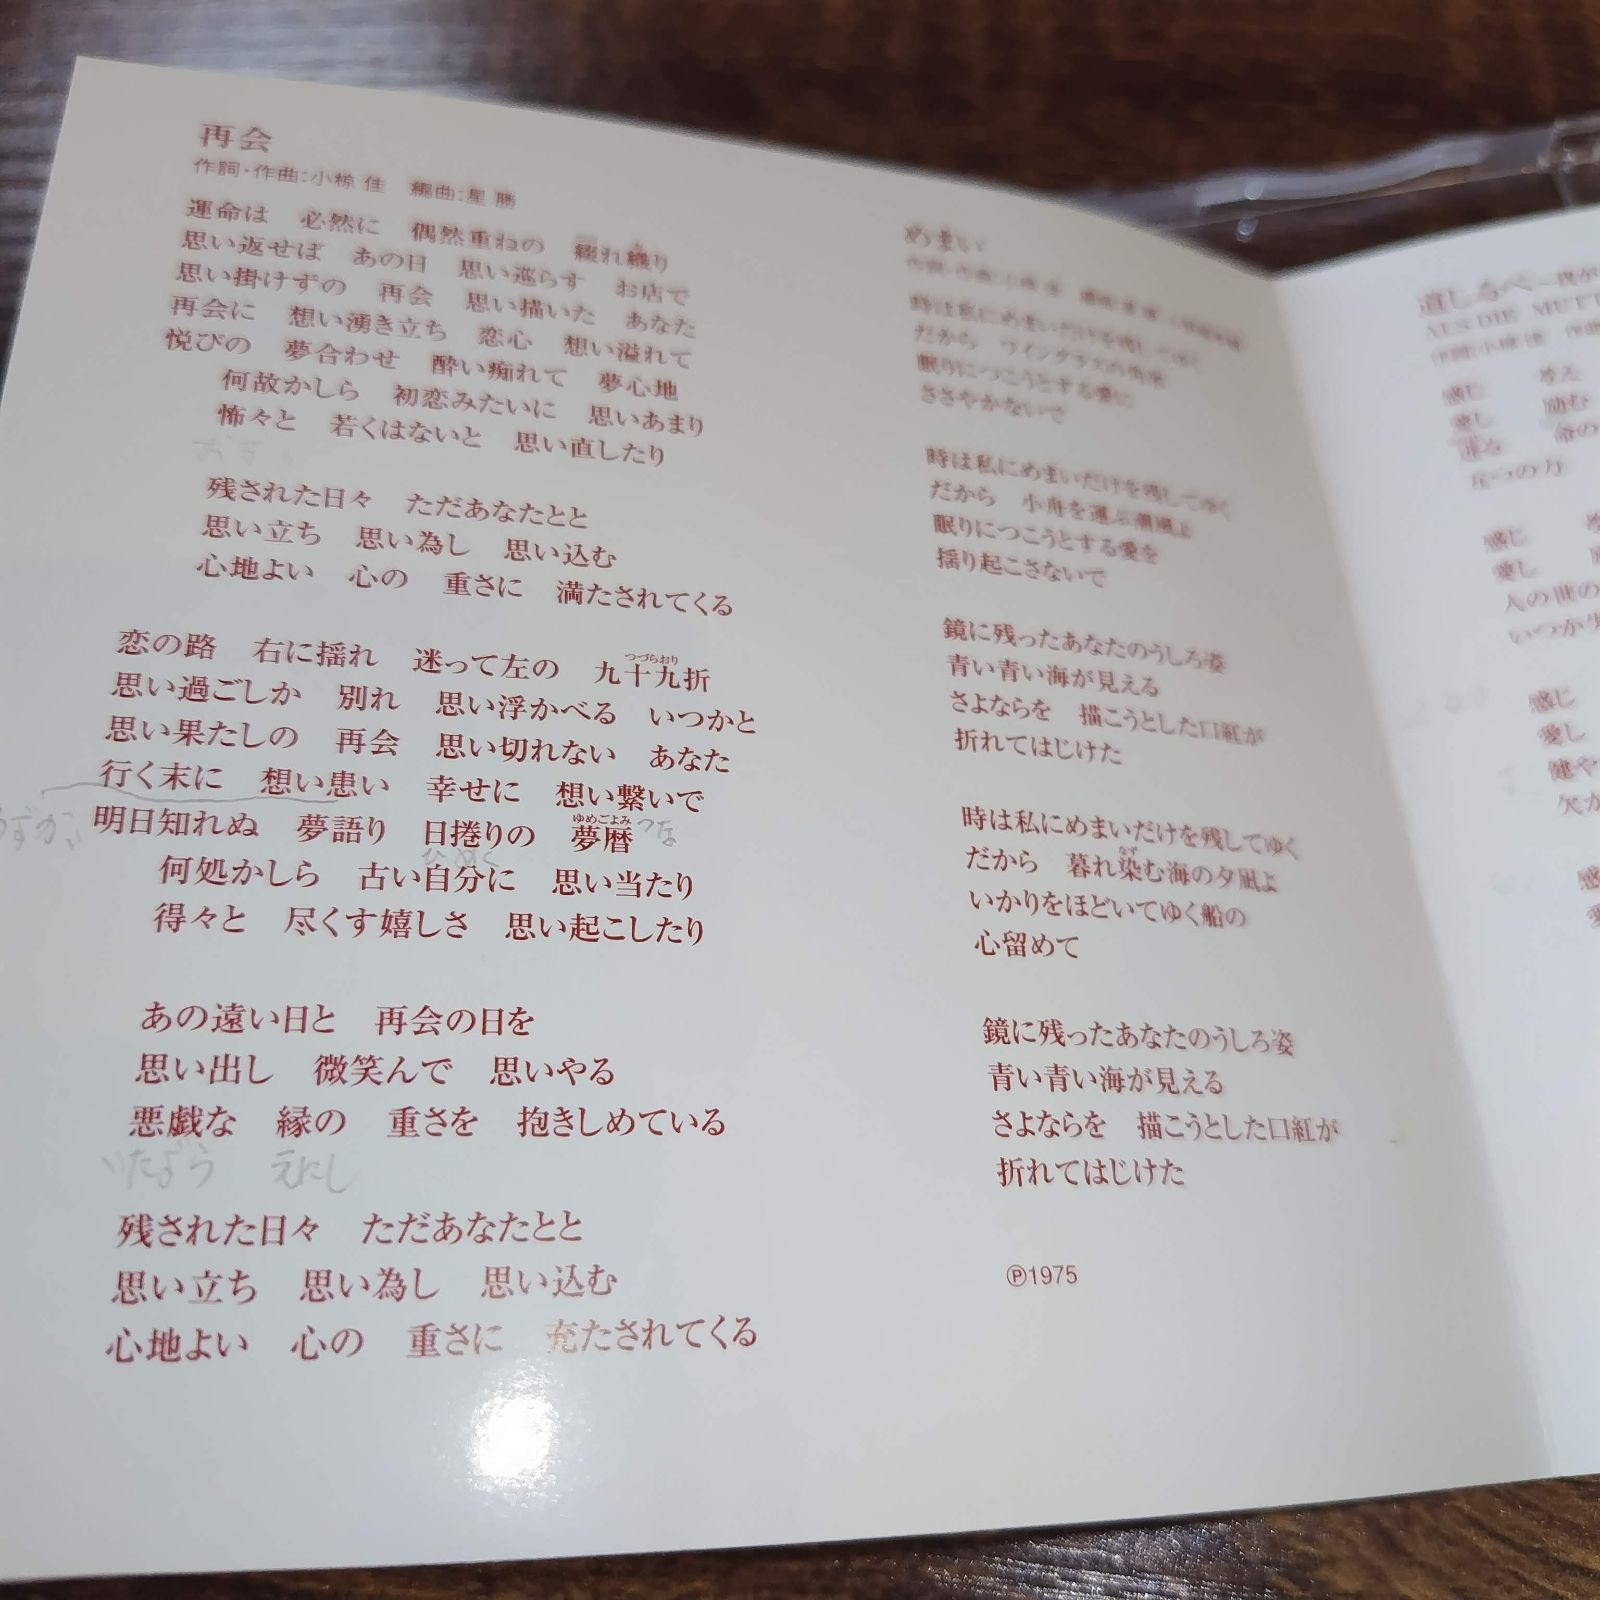 再会
作詞・作曲:小椋 佳　編曲:星 勝
運命は　必然に　偶然重ねの　綴れ織り
思い返せば　あの日　思い巡らす　お店で
思い掛けずの　再会　思い描いた　あなた
再会に　想い湧き立ち　恋心　想い溢れて
悦びの　夢合わせ　酔い痴れて　夢心地
何故かしら　初恋みたいに　思いあまり
怖々と　若くはないと　思い直したり
残された日々　ただあなたとと
思い立ち　思い為し　思い込む
心地よい　心の　重さに　満たされてくる
恋の路　右に揺れ　迷って左の　九十九折
つづらおり
思い過ごしか　別れ　思い浮かべる　いつかと
思い果たしの　再会　思い切れない　あなた
行く末に　想い患い　幸せに　想い繋いで
つな
明日知れぬ　夢語り　日捲りの　夢暦
ゆめごよみ
何処かしら　古い自分に　思い当たり
得々と　尽くす嬉しさ　思い起こしたり
あの遠い日と　再会の日を
思い出し　微笑んで　思いやる
悪戯な　縁の　重さを　抱きしめている
えにし
残された日々　ただあなたとと
思い立ち　思い為し　思い込む
心地よい　心の　重さに　充たされてくる
めまい
時は私にめまいだけを残してゆく
だから　ワイングラスの角氷
眠りにつこうとする愛に
ささやかないで
時は私にめまいだけを残してゆく
だから　小舟を運ぶ潮風よ
眠りにつこうとする愛を
揺り起こさないで
鏡に残ったあなたのうしろ姿
青い青い海が見える
さよならを　描こうとした口紅が
折れてはじけた
時は私にめまいだけを残してゆく
だから　暮れ染む海の夕凪よ
いかりをほどいてゆく船の
心留めて
鏡に残ったあなたのうしろ姿
青い青い海が見える
さよならを　描こうとした口紅が
折れてはじけた
Ⓟ1975
道しるべ
ALS DIE MUTT
感じ
愛し　励む
命の
感じ
愛し
人の世の
いつか
感じ
愛し
健や
欠か